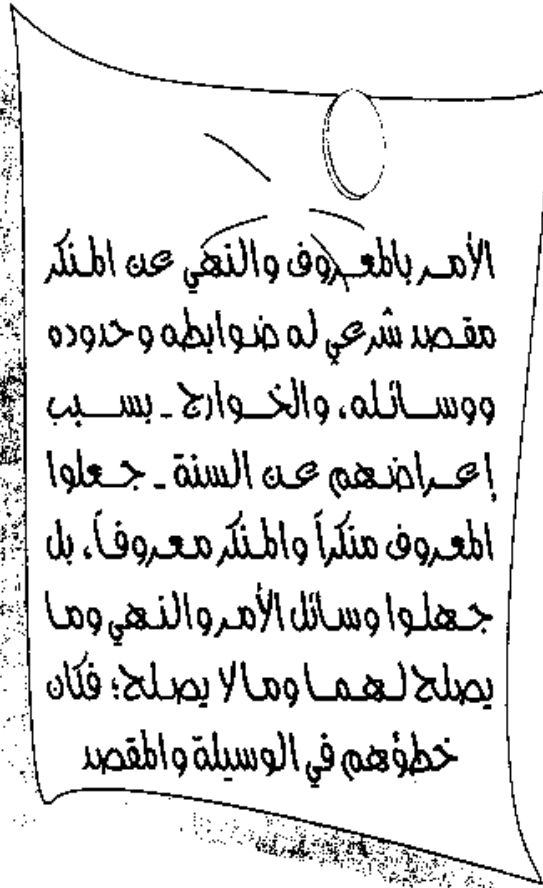 الأمر بالمعروف والنهي عن المنكر
مقصد شرعي له ضوابطه وحدوده
ووسائله، والخوارج - بسبب
إعراضهم عن السنة - جعلوا
المعروف منكراً والمنكر معروفاً، بل
جهلوا وسائل الأمر والنهي وما
يصلح لهما وما لا يصلح؛ فكان
خطؤهم في الوسيلة والمقصد